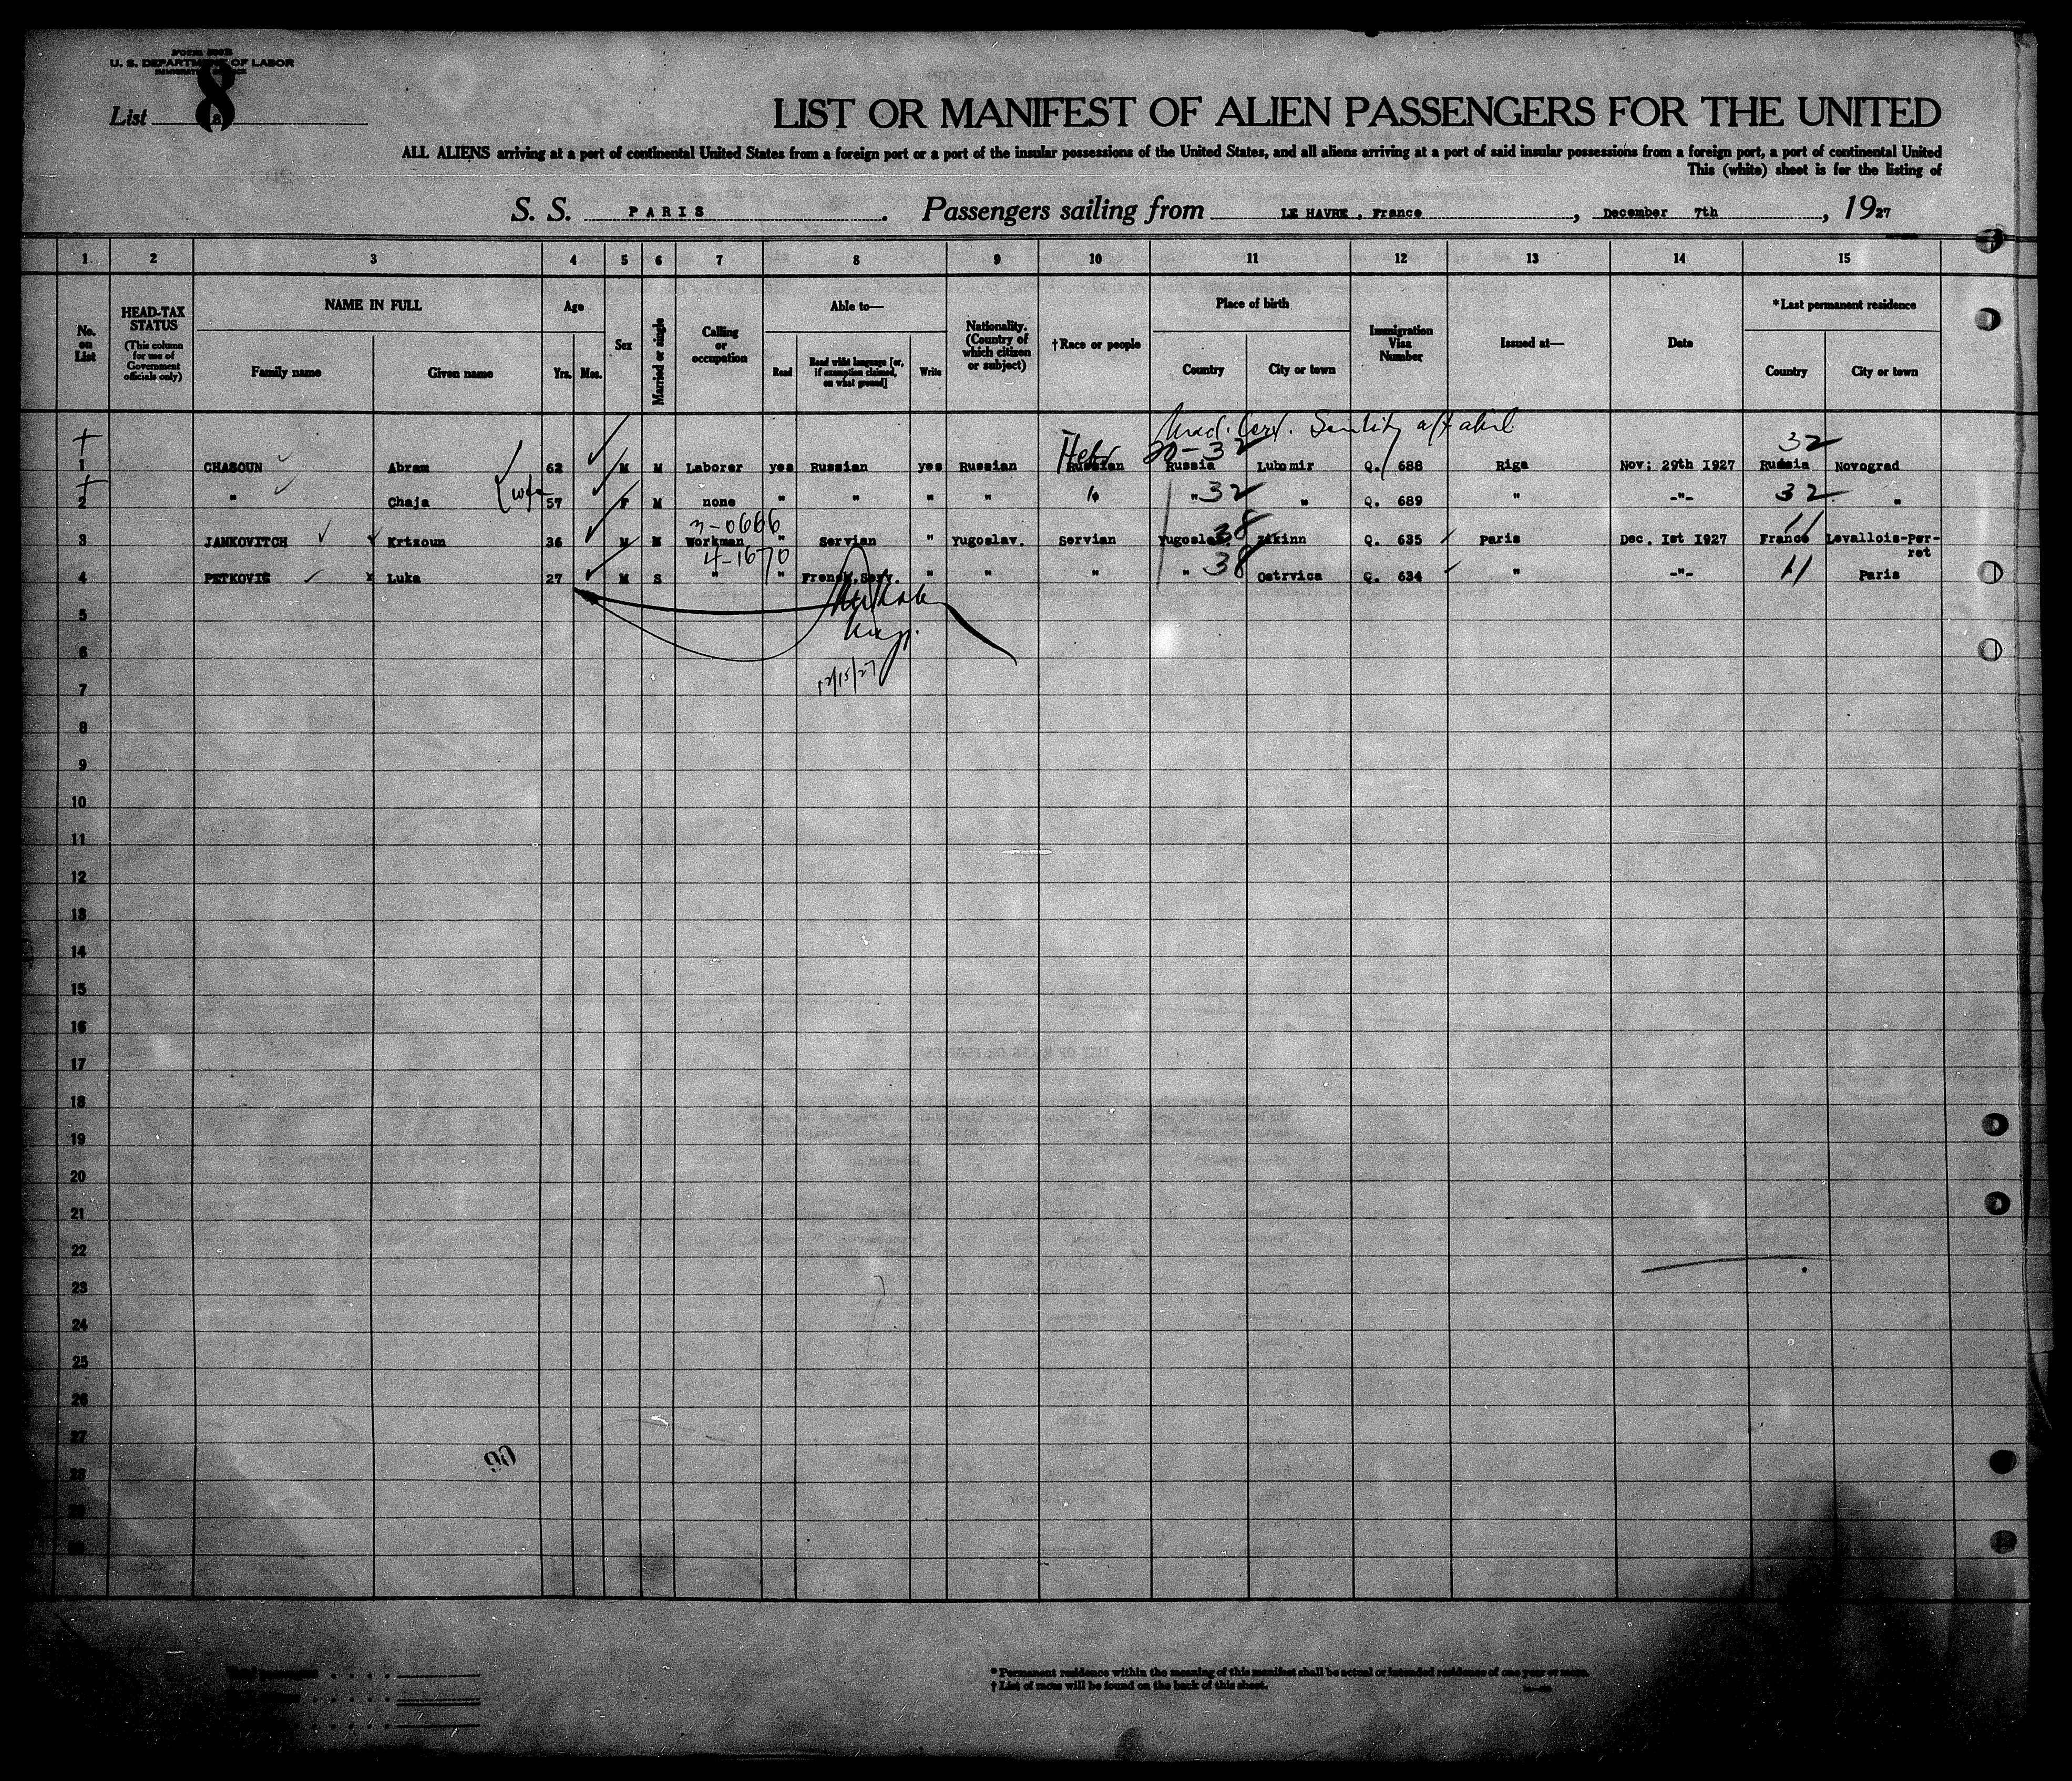 Form 500B
U. S. DEPARTMENT OF LABOR
IMMIGRATION SERVICE
List 8
LIST OR MANIFEST OF ALIEN PASSENGERS FOR THE UNITED
ALL ALIENS arriving at a port of continental United States from a foreign port or a port of the insular possessions of the United States, and all aliens arriving at a port of said insular possessions from a foreign port, a port of continental United
This (white) sheet is for the listing of
S. S. PARIS. Passengers sailing from LE HAVRE, France, December 7th, 1927
1 2 3 4 5 6 7 8 9 10 11 12 13 14 15
No. on List
HEAD-TAX STATUS (This column for use of Government officials only)
NAME IN FULL
Family name Given name
Age
Yrs. Mos.
Sex
Married or single
Calling or occupation
Able to—
Read Read what language [or, if exemption claimed, on what ground] Write
Nationality. (Country of which citizen or subject)
†Race or people
Place of birth
Country City or town
Immigration Visa Number
Issued at—
Date
*Last permanent residence
Country City or town
Med. Cert. Senility
Hebr 20-32 32
1 CHASOUN Abram 62 M M Laborer yes Russian yes Russian Russian Russia Lubomir Q. 688 Riga Nov: 29th 1927 Russia Novograd
2 " Chaja wife 57 F M none " " " " " " 32 " Q. 689 " -"- 32 "
3-0666 38 11
3 JANKOVITCH Krtzoun 36 M M Workman " Servian " Yugoslav. Servian Yugosla. Q. 635 Paris Dec. Ist 1927 France Levallois-Per-
ret
4-1670
4 PETKOVIE x Luka 27 M S " " French, Serv. " " " " 38 Ostrvica Q. 634 " -"- 11 Paris
12/15/27
5
6
7
8
9
10
11
12
13
14
15
16
17
18
19
20
21
22
23
24
25
26
27
28
29
30
90
* Permanent residence within the meaning of this manifest shall be actual or intended residence of one year or more.
† List of races will be found on the back of this sheet.